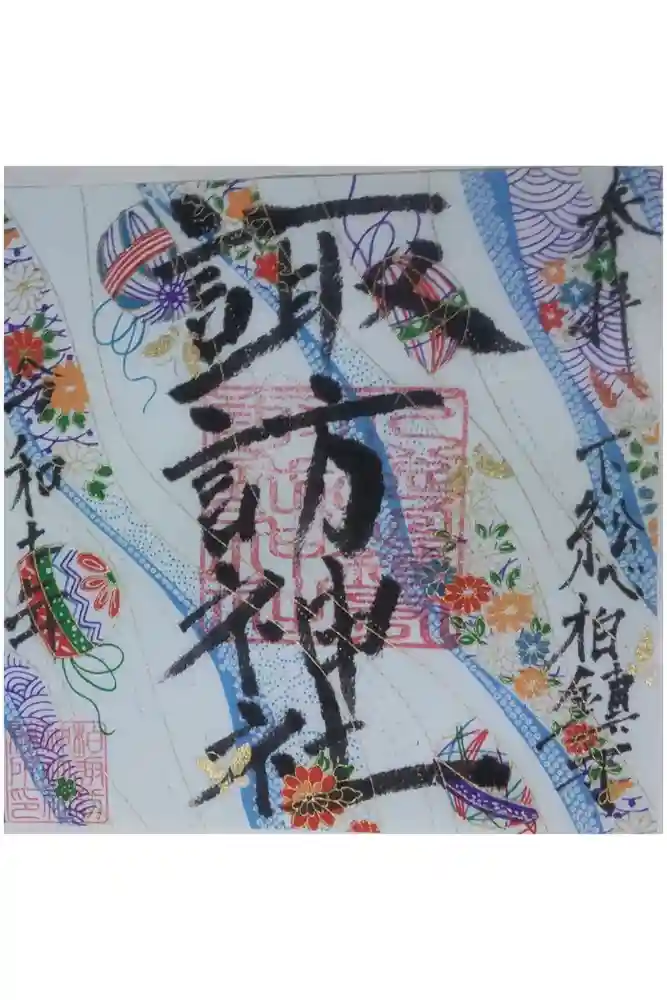 奉拝
下総柏鎮守
諏訪神社
令和七年